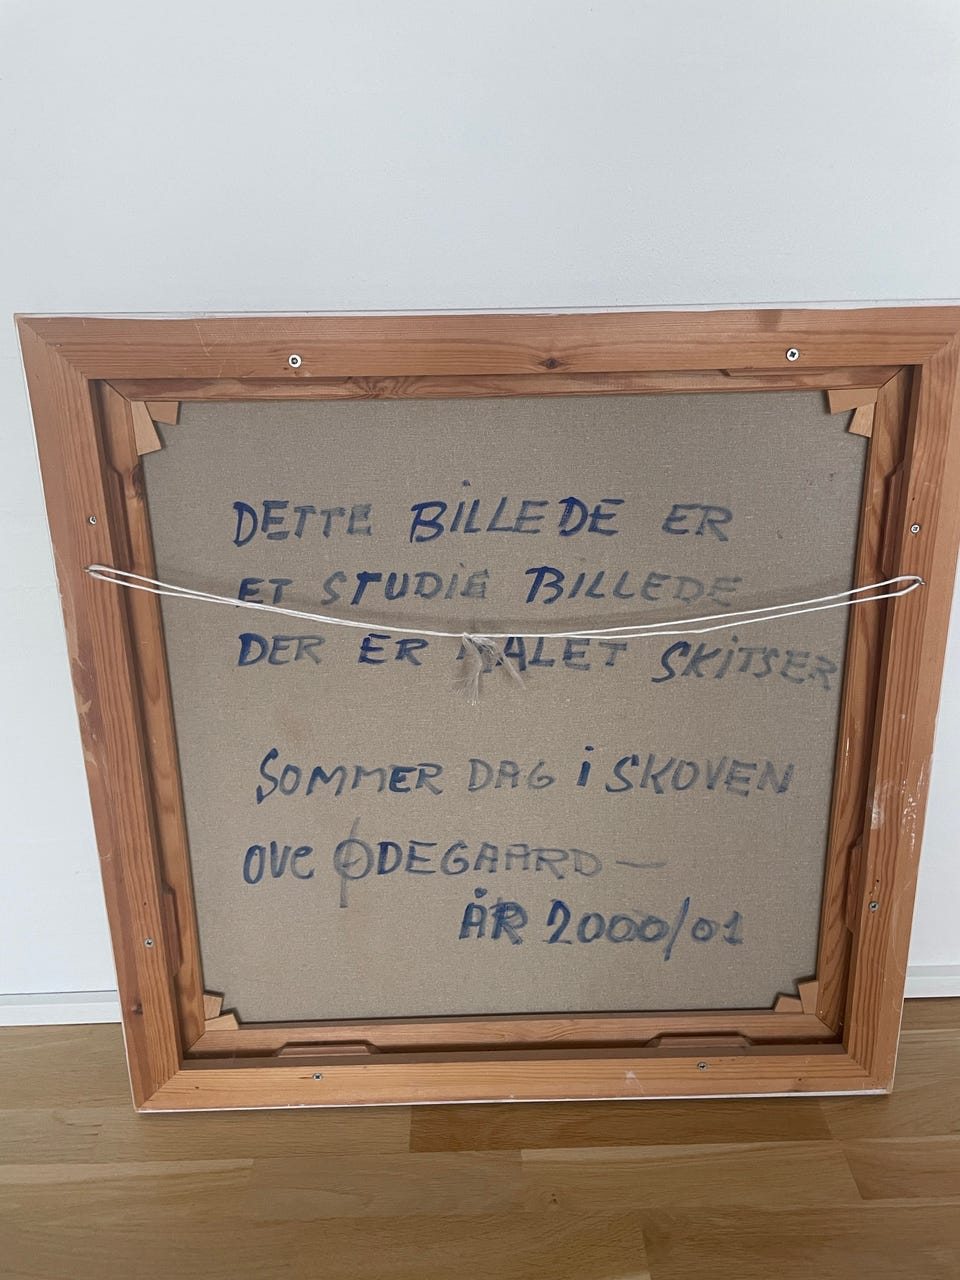 DETTE BILLEDE ER
ET STUDIE BILLEDE
DER ER MALET SKITSER
SOMMER DAG i SKOVEN
Ove ØDEGAARD —
ÅR 2000/01